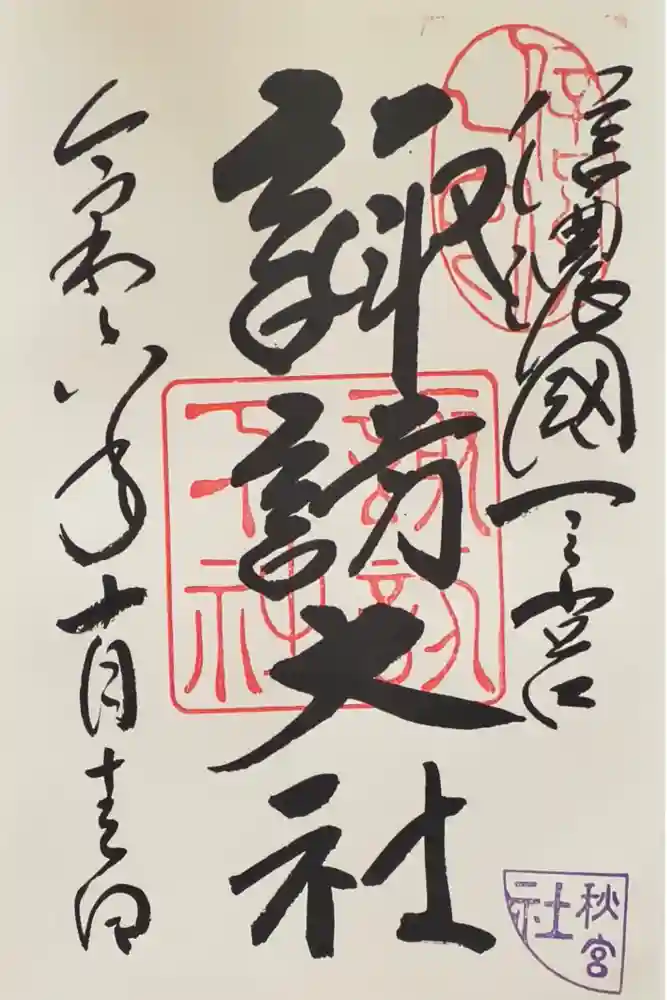 信濃國一之宮
諏訪大社
諏訪
下社
令和六年十月十三日
秋宮
社